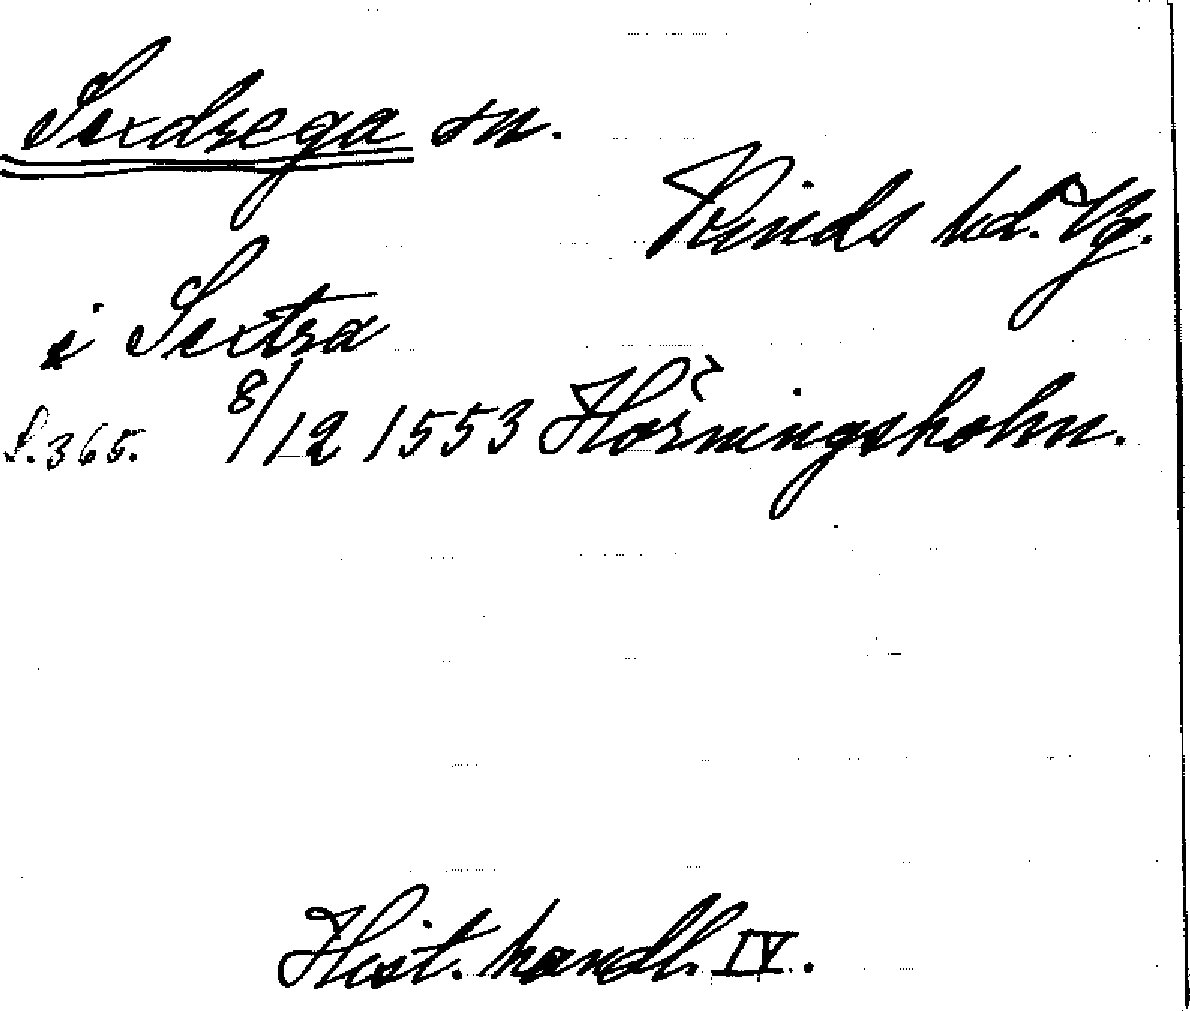 Sexdrega sn.
Kinds hd. Vg.
i Sextra
S. 365. 8/12 1553 Hörningsholm.
Hist. handl. IV.